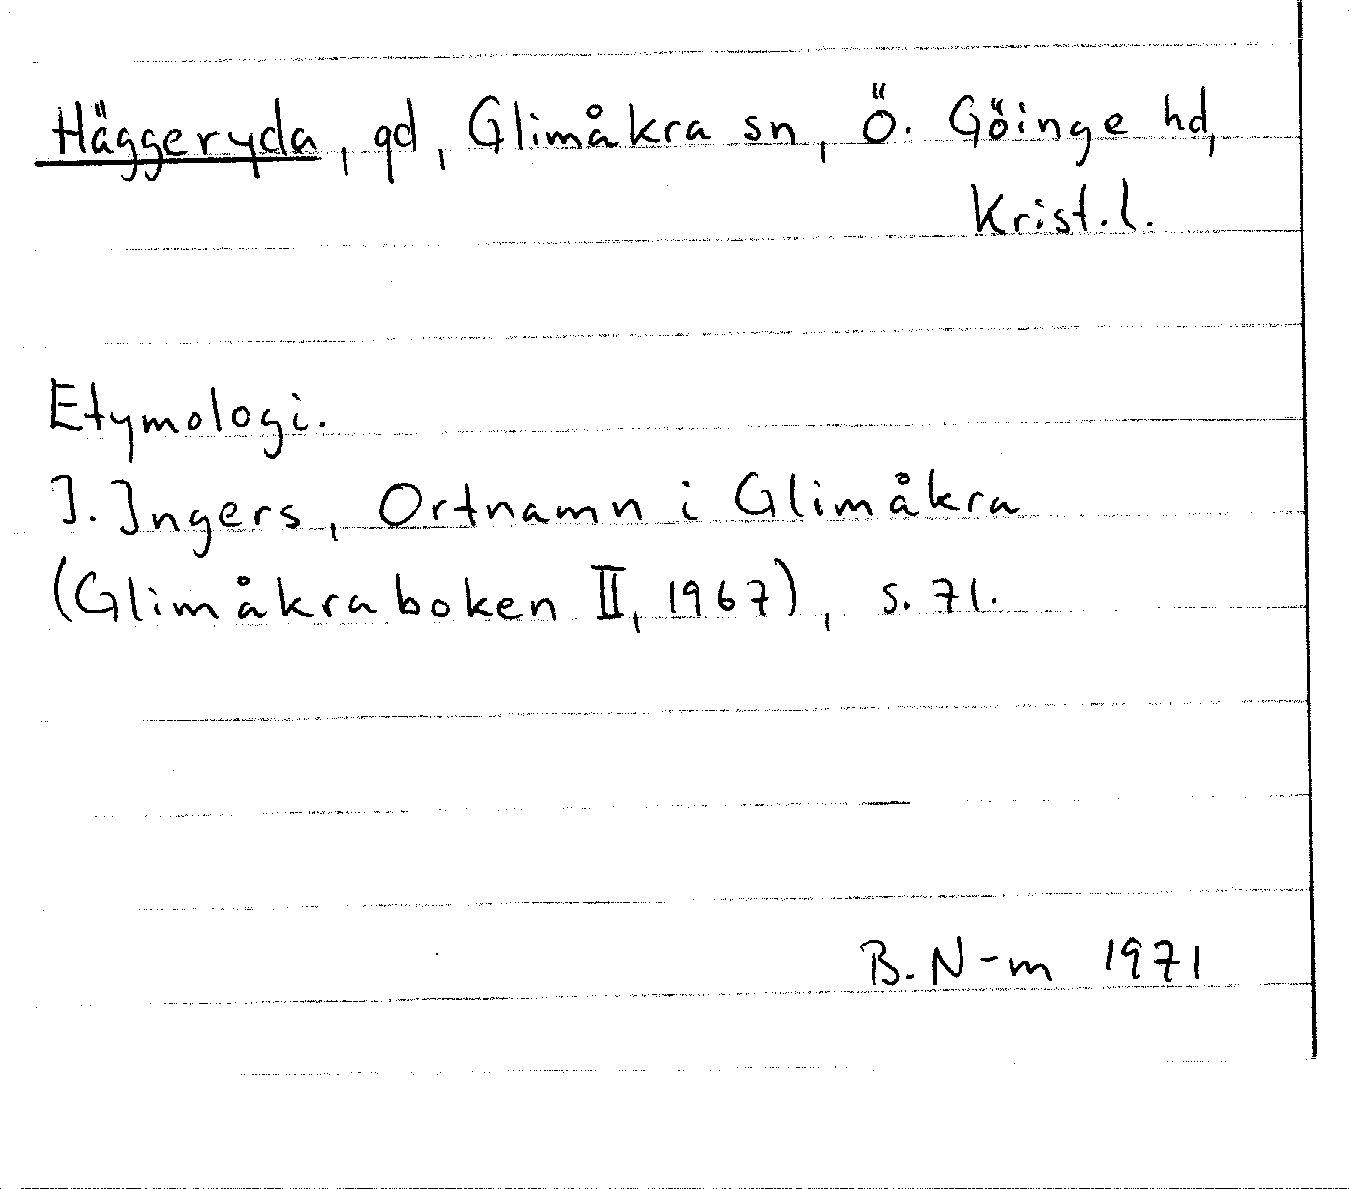 Häggeryda, gd, Glimåkra sn, Ö. Göinge hd,
Krist.l.
Etymologi.
I. Ingers, Ortnamn i Glimåkra
(Glimåkraboken II, 1967), s. 71.
B. N-m 1971